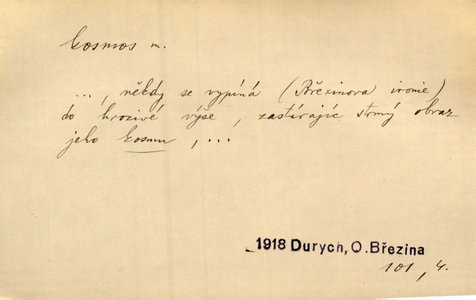 kosmos m.
..., někdy se vypíná (Březinova ironie)
do hrozivé výše, zastírajíc strmý obraz
jeho kosmu, ...
1918 Durych, O. Březina
101, 4.